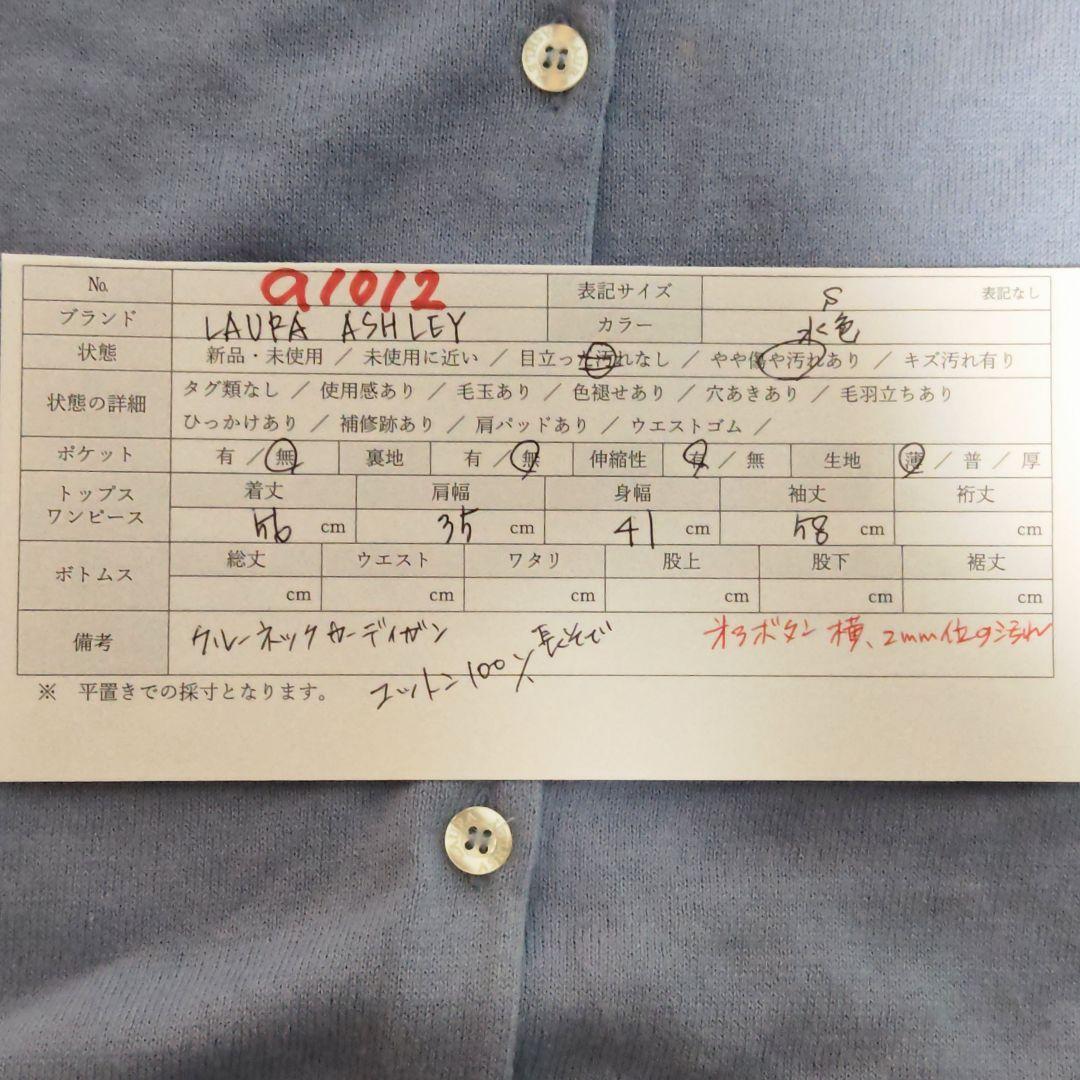 No. a1012 表記サイズ S 表記なし
ブランド LAURA ASHLEY カラー 水色
状態 新品・未使用 / 未使用に近い / 目立った汚れなし / やや傷や汚れあり / キズ汚れ有り
状態の詳細 タグ類なし / 使用感あり / 毛玉あり / 色褪せあり / 穴あきあり / 毛羽立ちあり
ひっかけあり / 補修跡あり / 肩パッドあり / ウエストゴム /
ポケット 有 / 無 裏地 有 / 無 伸縮性 有 / 無 生地 薄 / 普 / 厚
トップス ワンピース 着丈 肩幅 身幅 袖丈 裄丈
56 cm 35 cm 41 cm 58 cm cm
ボトムス 総丈 ウエスト ワタリ 股上 股下 裾丈
cm cm cm cm cm cm
備考 クルーネックカーディガン 長そで 横、2mm位の汚れ
コットン100%
※ 平置きでの採寸となります。